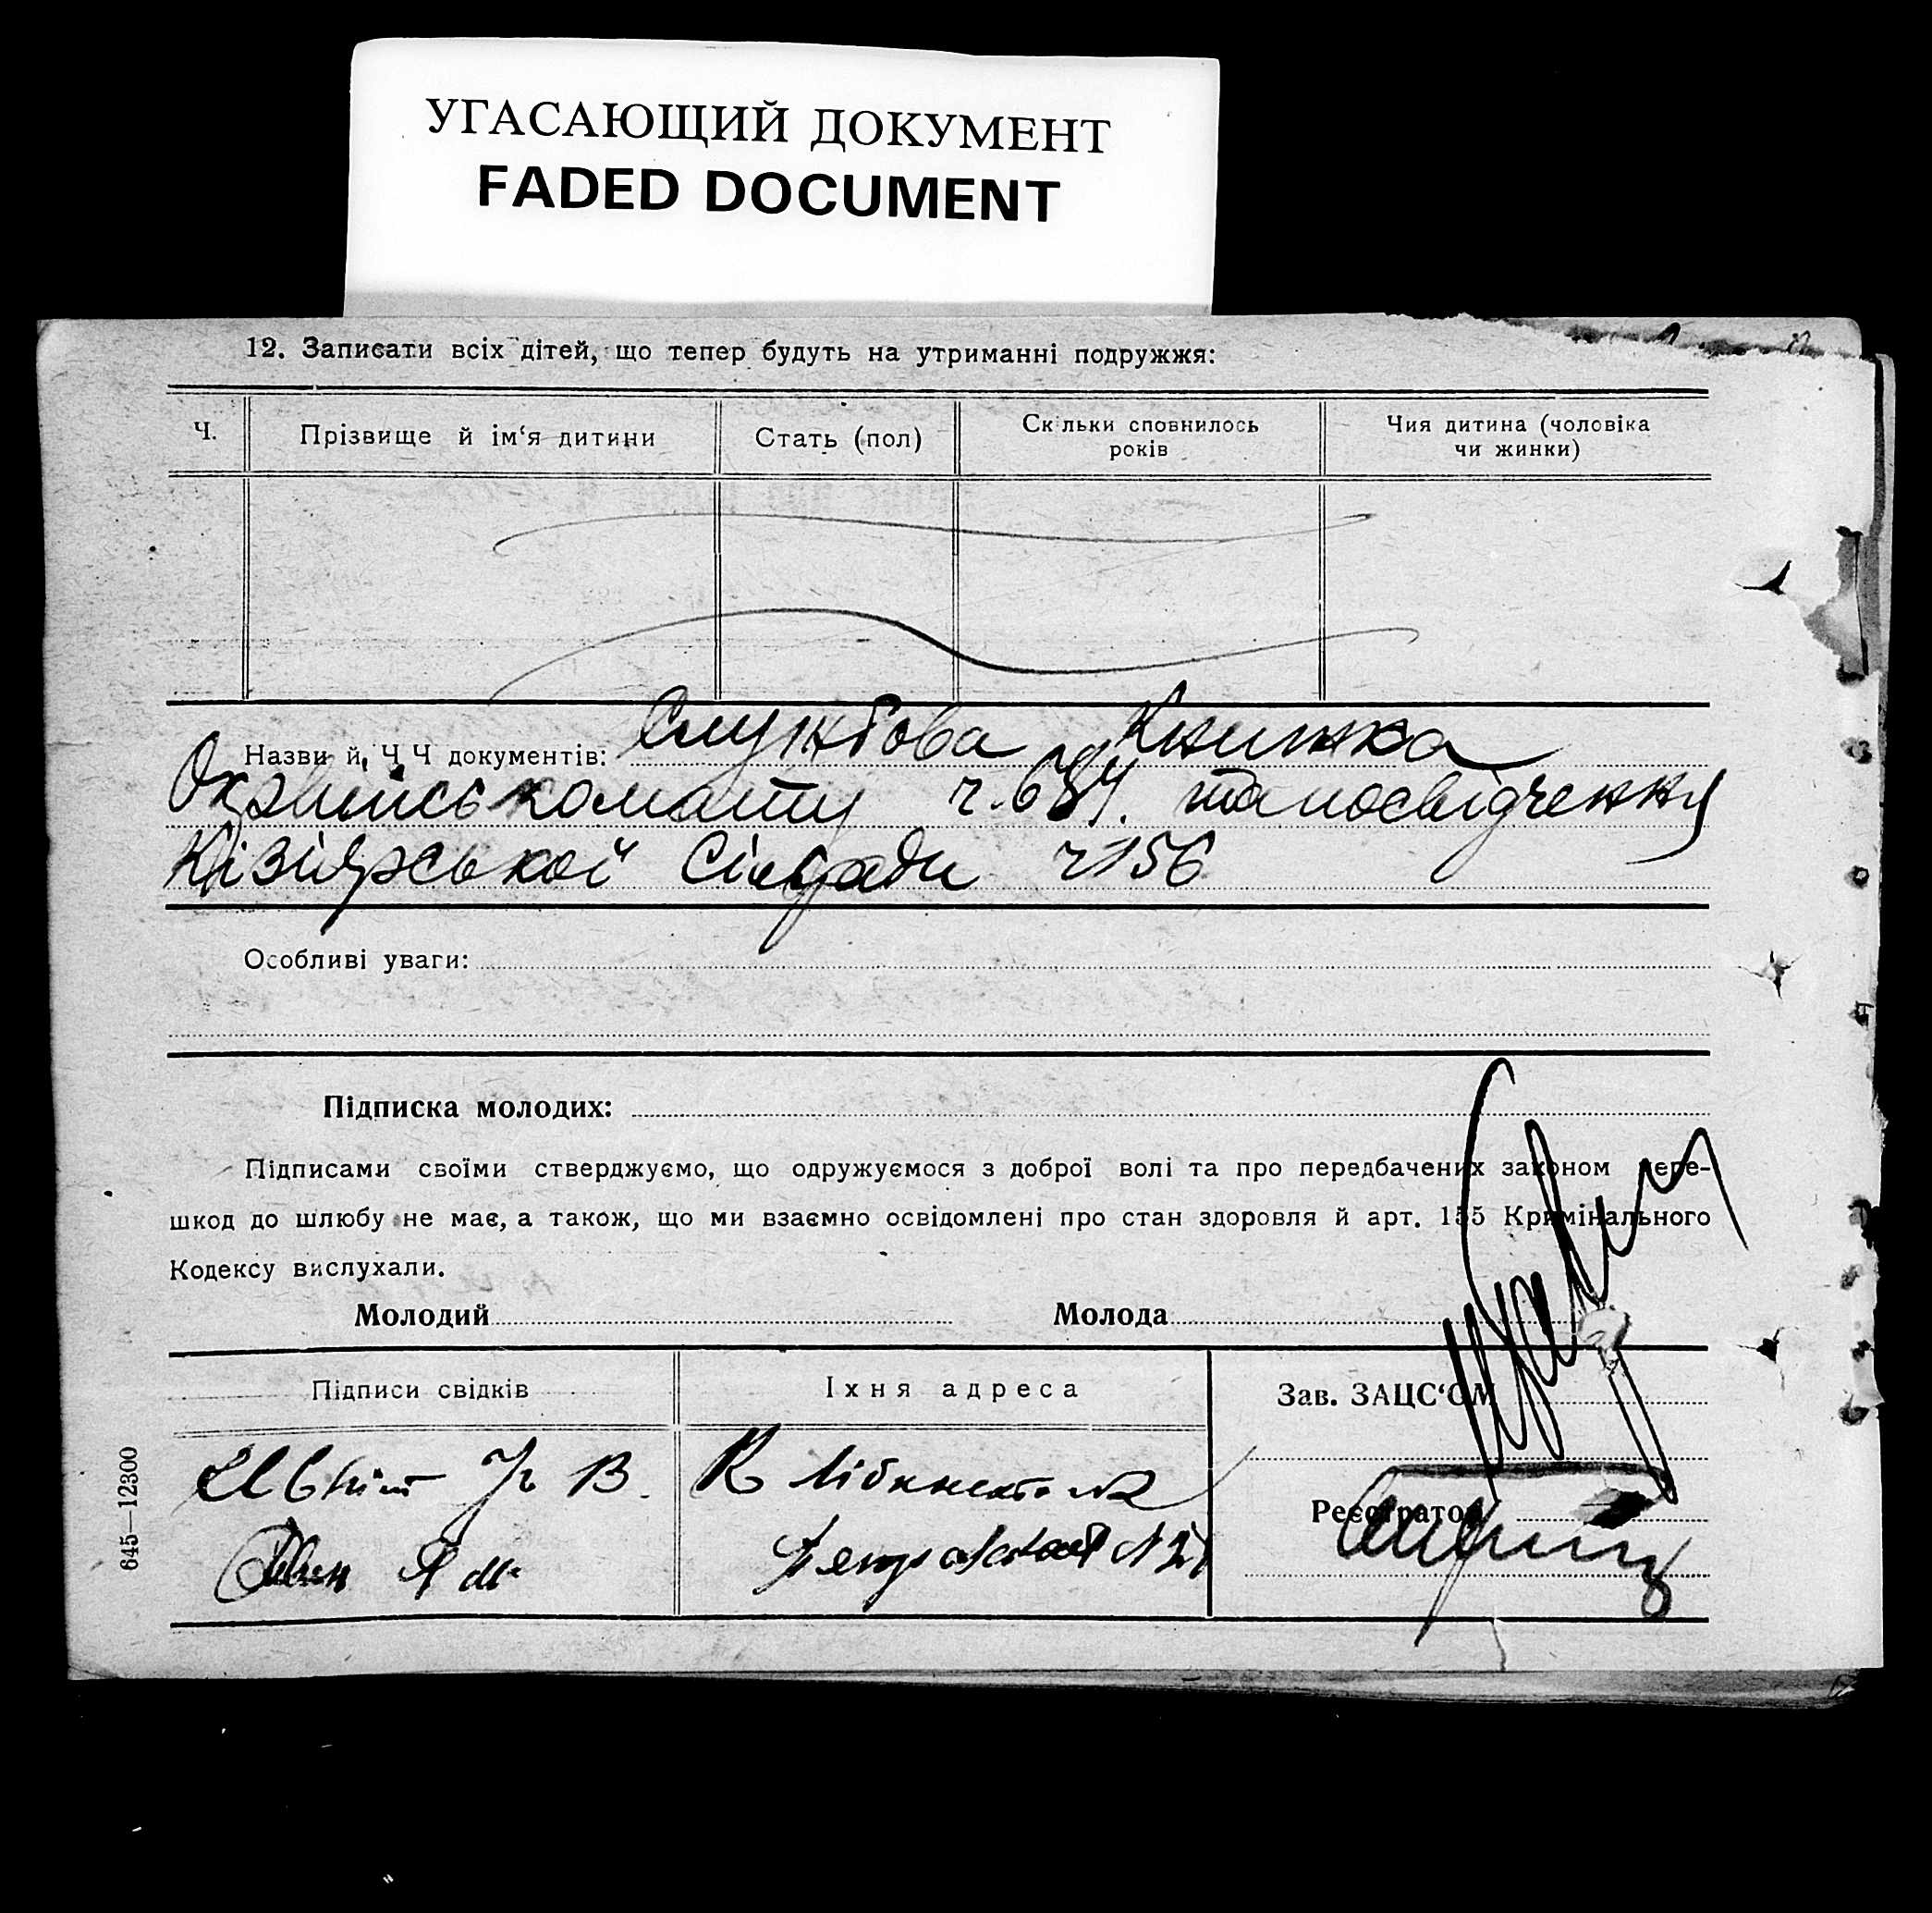 УГАСАЮЩИЙ ДОКУМЕНТ
FADED DOCUMENT
12. Записати всіх дітей, що тепер будуть на утриманні подружжя:
Ч.
Прізвище й ім‘я дитини
Стать (пол)
Скільки сповнилось
років
Чия дитина (чоловіка
чи жинки)
Назви й Ч Ч документів: Службова Книжка
ч. 684. та посвідчення
Кізіярської Сільради ч 156
Особливі уваги:
Підписка молодих:
Підписами своїми стверджуємо, що одружуємося з доброї волі та про передбачених законом пере-
шкод до шлюбу не має, а також, що ми взаємно освідомлені про стан здоровля й арт. 155 Кримінального
Кодексу вислухали.
Молодий
Молода
Підписи свідків
Їхня адреса
Зав. ЗАЦС‘ОМ
К Лібкнехта №2
Реєстратор
Я М.
645—12300